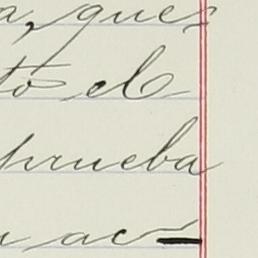 a, que
to el
prueba
u ac-